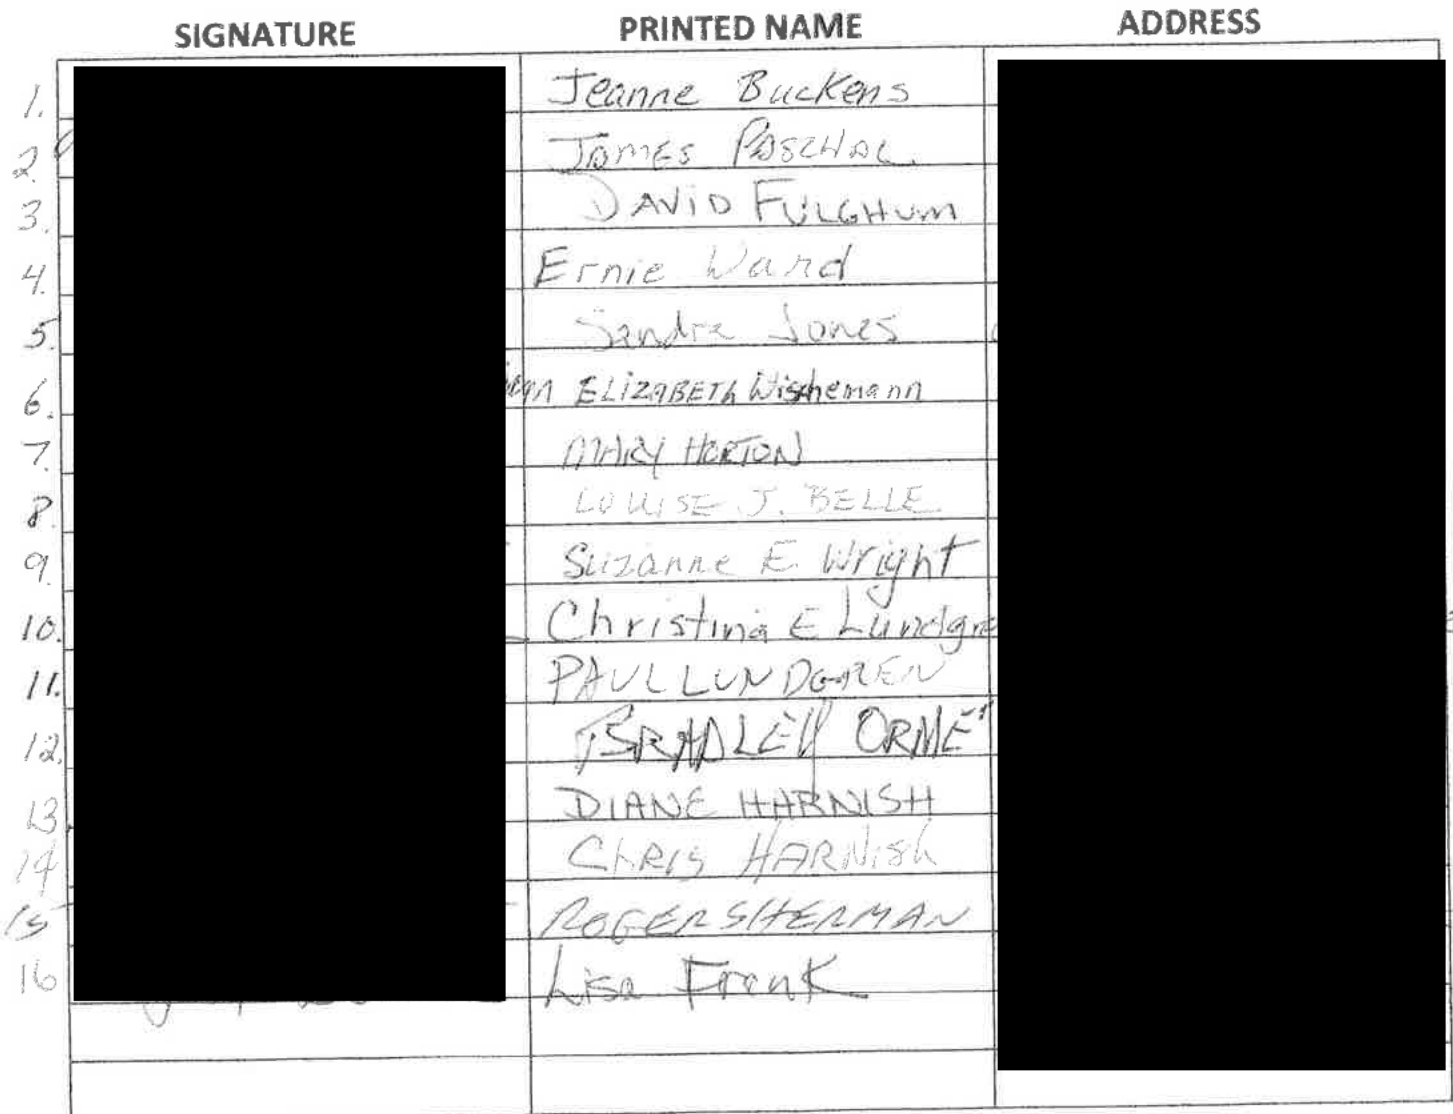 SIGNATURE PRINTED NAME ADDRESS
1. Jeanne Buckens
2. JAMES PASCHAL
3. DAVID FULGHUM
4. Ernie Ward
5. Sandra Jones
6. ELIZABETH Wischemann
7. MARY HORTON
8. LOUISE J. BELLE
9. Suzanne E. Wright
10. Christina E Lundgre
11. PAUL LUNDGREN
12. BRADLEY ORME
13. DIANE HARNISH
14 CHRIS HARNISh
15 ROGER SHERMAN
16 Lisa Frank